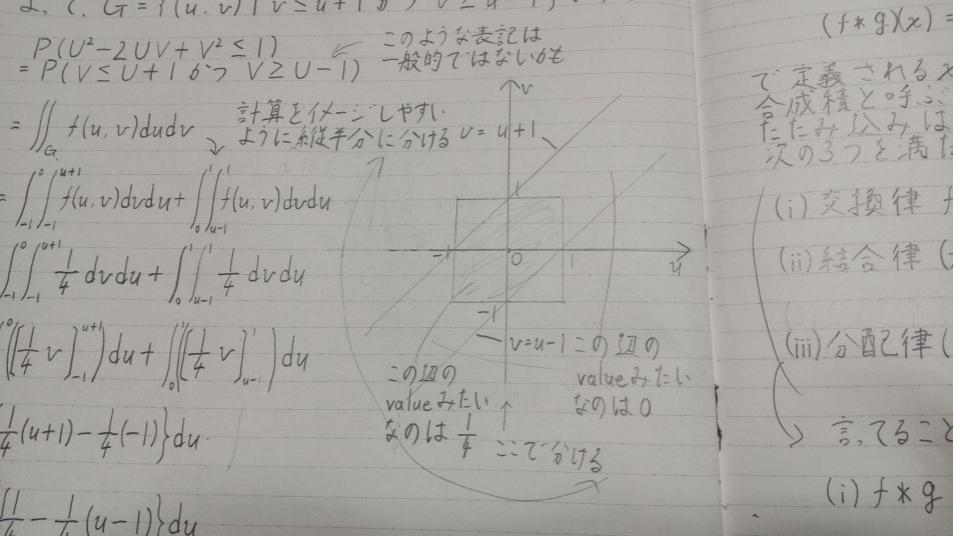 G = {(u, v) | v ≤ u + 1 かつ v ≥ u - 1
P(U² - 2UV + V² ≤ 1)
= P(V ≤ U + 1 かつ V ≥ U - 1)
このような表記は
一般的ではないかも
= ∬_G f(u, v) du dv
計算をイメージしやすい
ように縦半分に分ける
= ∫_{-1}^{0} ∫_{-1}^{u+1} f(u, v) dv du + ∫_{0}^{1} ∫_{u-1}^{1} f(u, v) dv du
∫_{-1}^{0} ∫_{-1}^{u+1} 1/4 dv du + ∫_{0}^{1} ∫_{u-1}^{1} 1/4 dv du
([1/4 v]_{-1}^{u+1}) du + ∫_{0}^{1} ([1/4 v]_{u-1}^{1}) du
1/4 (u+1) - 1/4 (-1)} du
- 1/4 (u-1)} du
v
v = u + 1
1
-1
0
1
u
-1
v = u - 1
この辺の
valueみたい
なのは 1/4
この辺の
valueみたい
なのは 0
ここで分ける
(f * g)(x) =
で定義される
合成積と呼ぶ
たたみ込みは
次の3つを満た
(i) 交換律 f
(ii) 結合律 (
(iii) 分配律 (
言ってること
(i) f * g